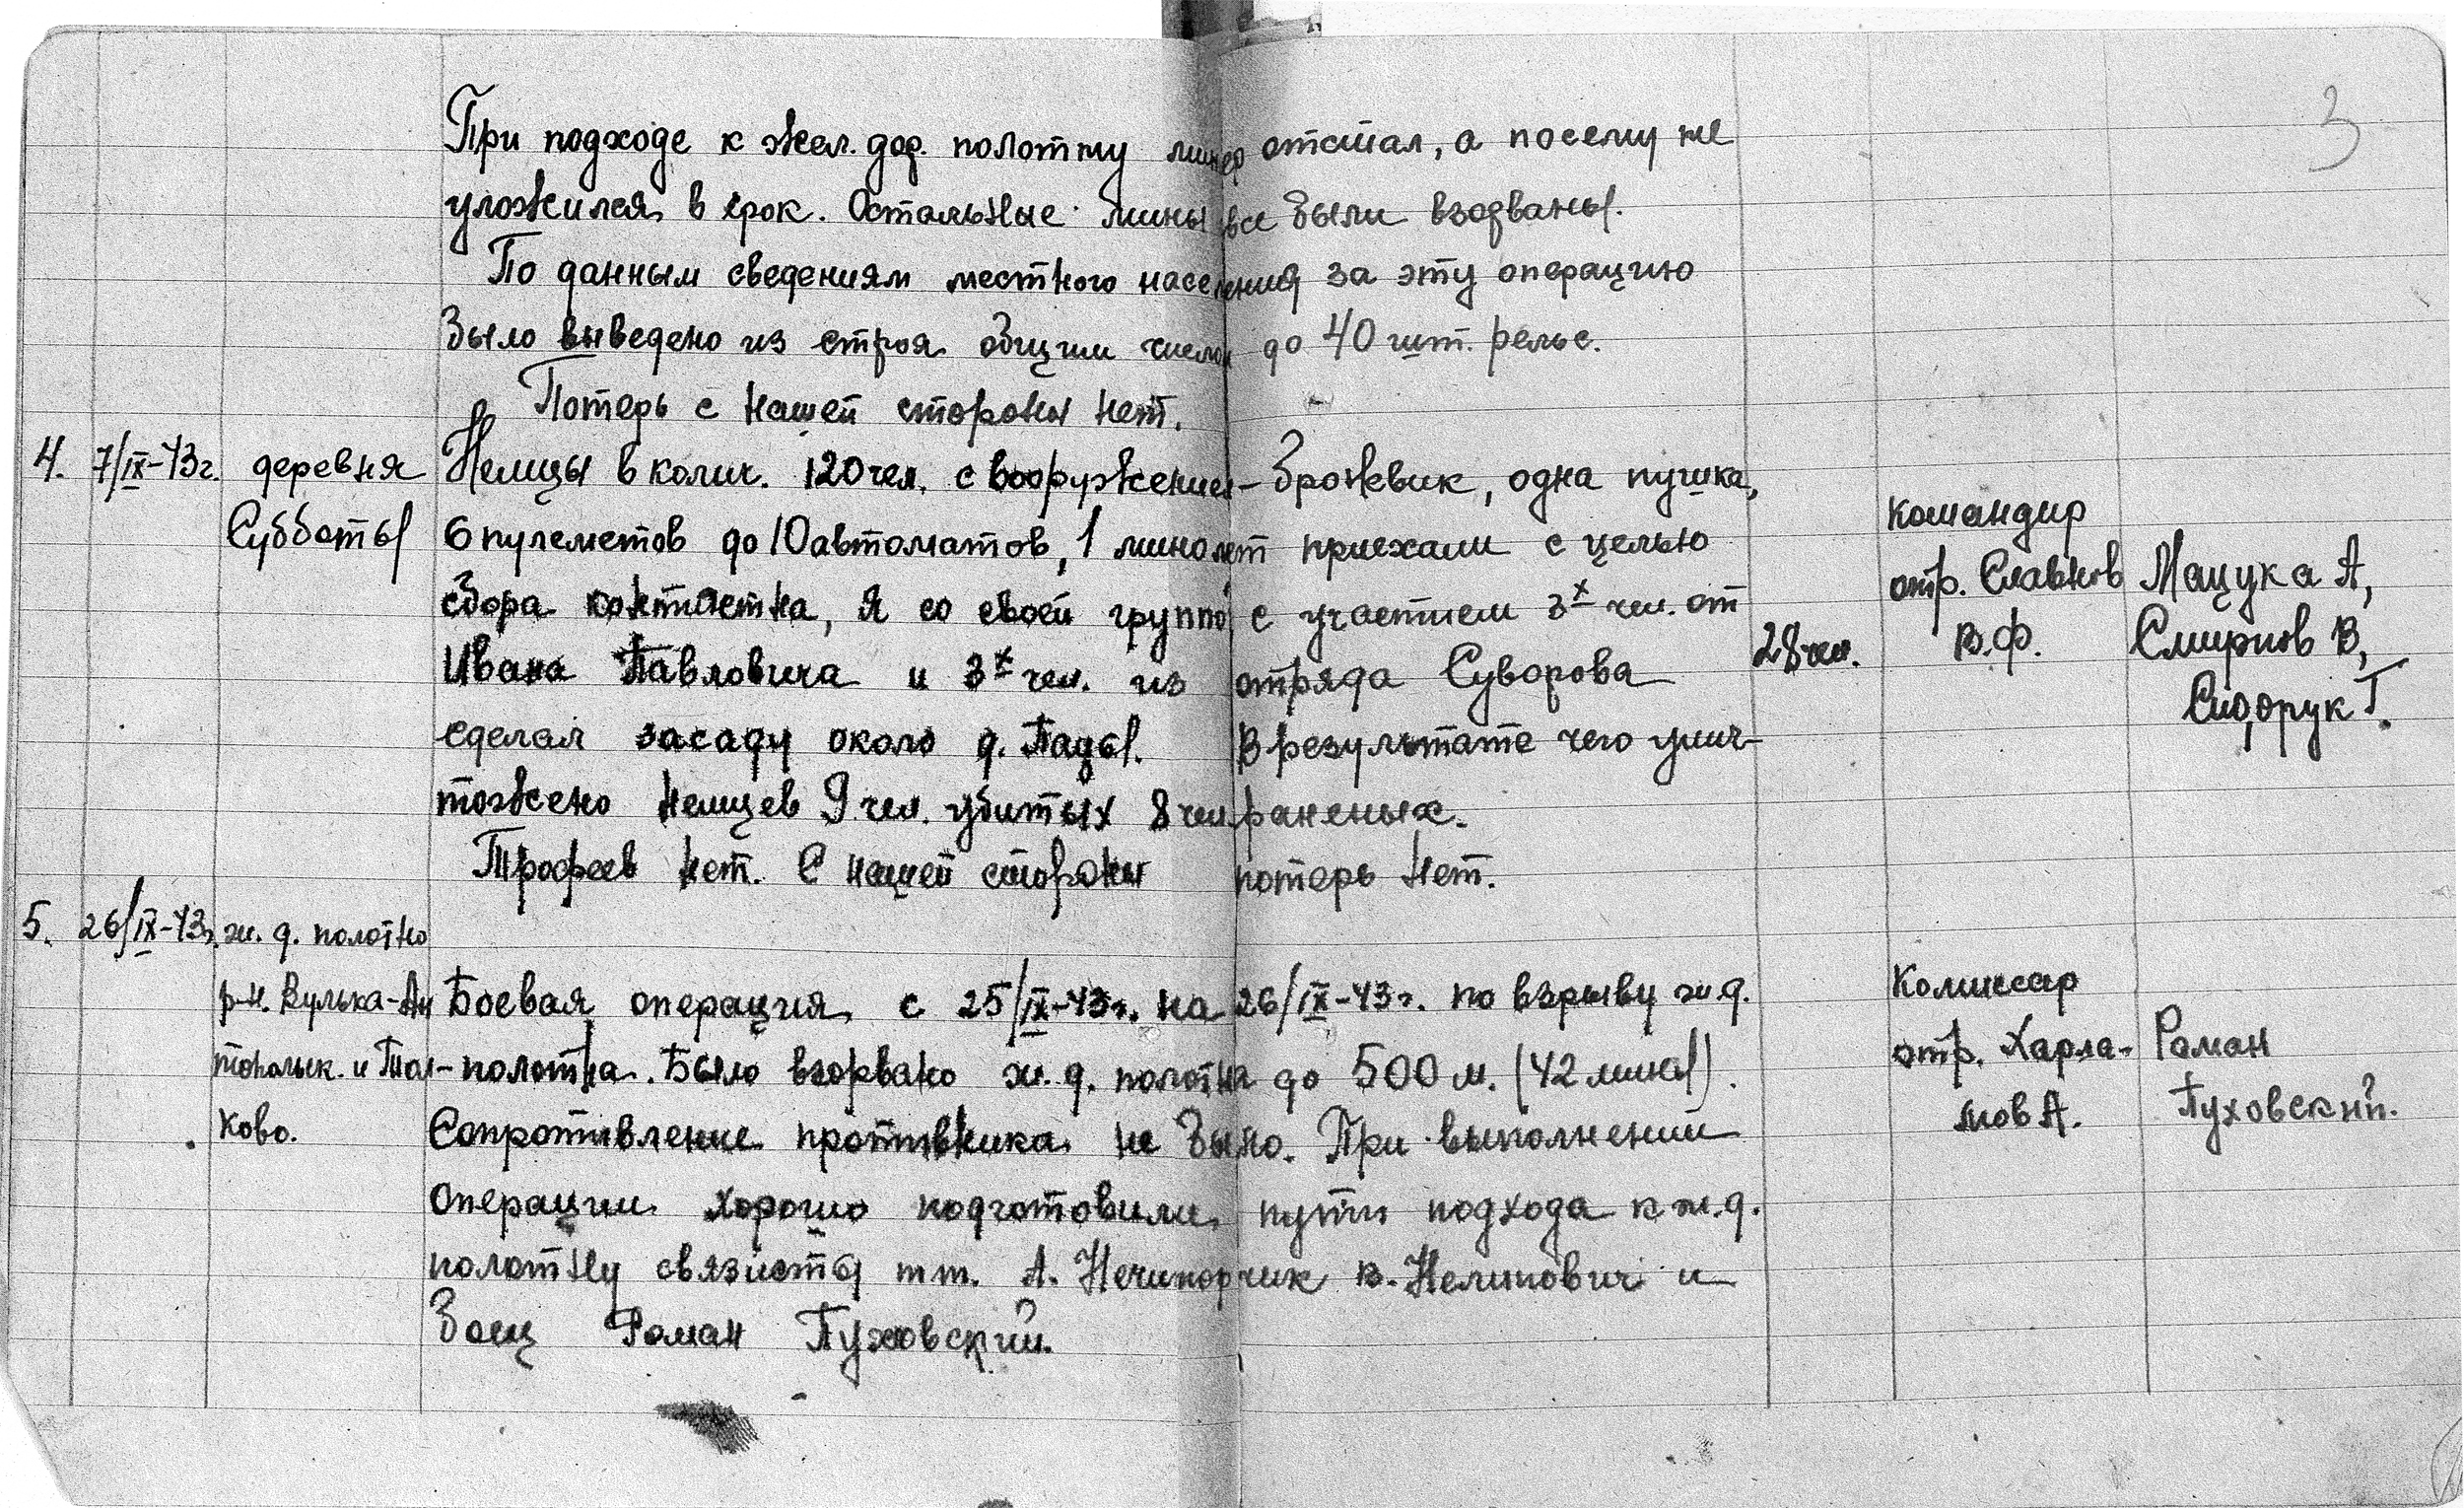 3
При подходе к жел. дор. полотну минер отстал, а посему не
уложился в срок. Остальные мины все были взорваны.
По данным сведениям местного населения за эту операцию
было выведено из строя общим числом до 40 шт. рельс.
Потерь с нашей стороны нет.
4. 7/IX-43г. деревня Субботы
Немцы в колич. 120 чел. с вооружением - броневик, одна пушка,
6 пулеметов до 10 автоматов, 1 миномет приехали с целью
сбора контигента, я со своей группой с участием 3х чел. от
Ивана Павловича и 3х чел. из отряда Суворова
сделал засаду около д. Пацы. В результате чего унич-
тожено немцев 9 чел. убитых 8 чел. раненых.
Трофеев нет. С нашей стороны потерь нет.
28 чел.
Командир
отр. Славнов
В.Ф.
Мацука А,
Смирнов В,
Сидорук Г.
5. 26/IX-43г. ж. д. полотно
р-н. Вулька-Ан
тональск. и Тал-
ково.
Боевая операция с 25/IX-43г. на 26/IX-43г. по взрыву ж.д.
полотна. Было взорвано ж. д. полотна до 500 м. (42 мины).
Сопротивление противника не было. При выполнении
операции хорошо подготовили пути подхода к ж.д.
полотну связисты тт. А. Нечипорчик В. Нелипович и
боец Роман Пуховский.
Комиссар
отр. Харла-
мов А.
Роман
Пуховский.